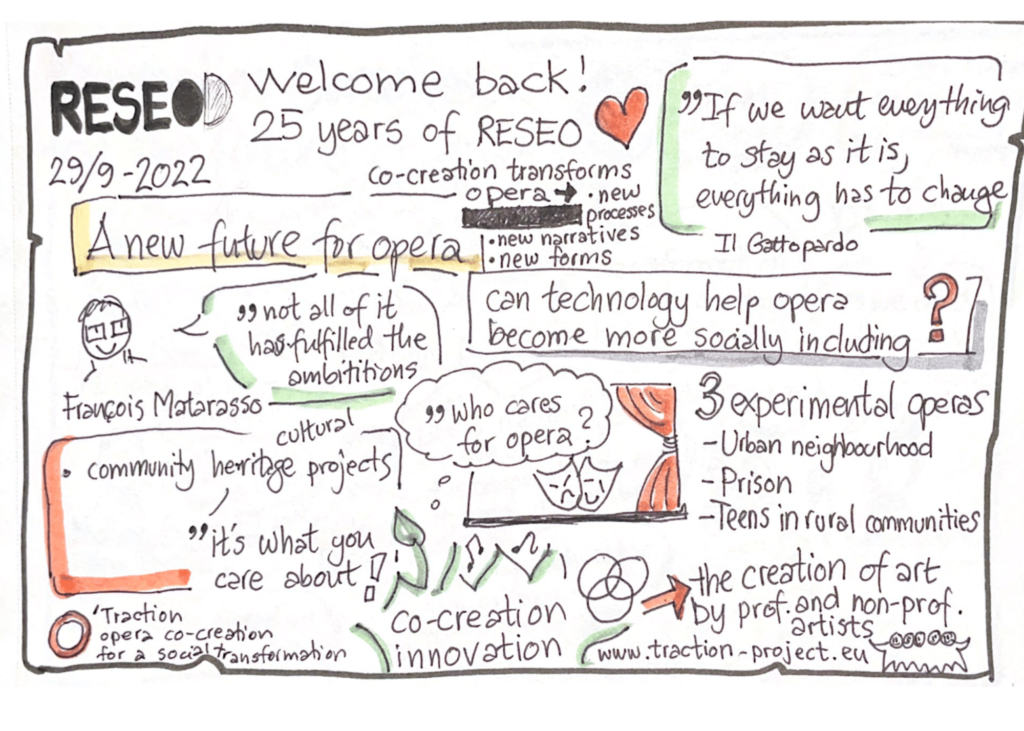 RESEO
Welcome back!
25 years of RESEO
29/9-2022
"If we want everything
to stay as it is,
everything has to change
Il Gattopardo
co-creation transforms
opera → • new
processes
• new narratives
• new forms
A new future for opera
"not all of it
has fulfilled the
ambititions
François Matarasso
can technology help opera
become more socially including ?
"who cares
for opera?
3 experimental operas
- Urban neighbourhood
- Prison
- Teens in rural communities
cultural
• community heritage projects
"it's what you
care about!
'Traction
opera co-creation
for a social transformation
co-creation
innovation
the creation of art
by prof. and non-prof.
artists
www.traction-project.eu